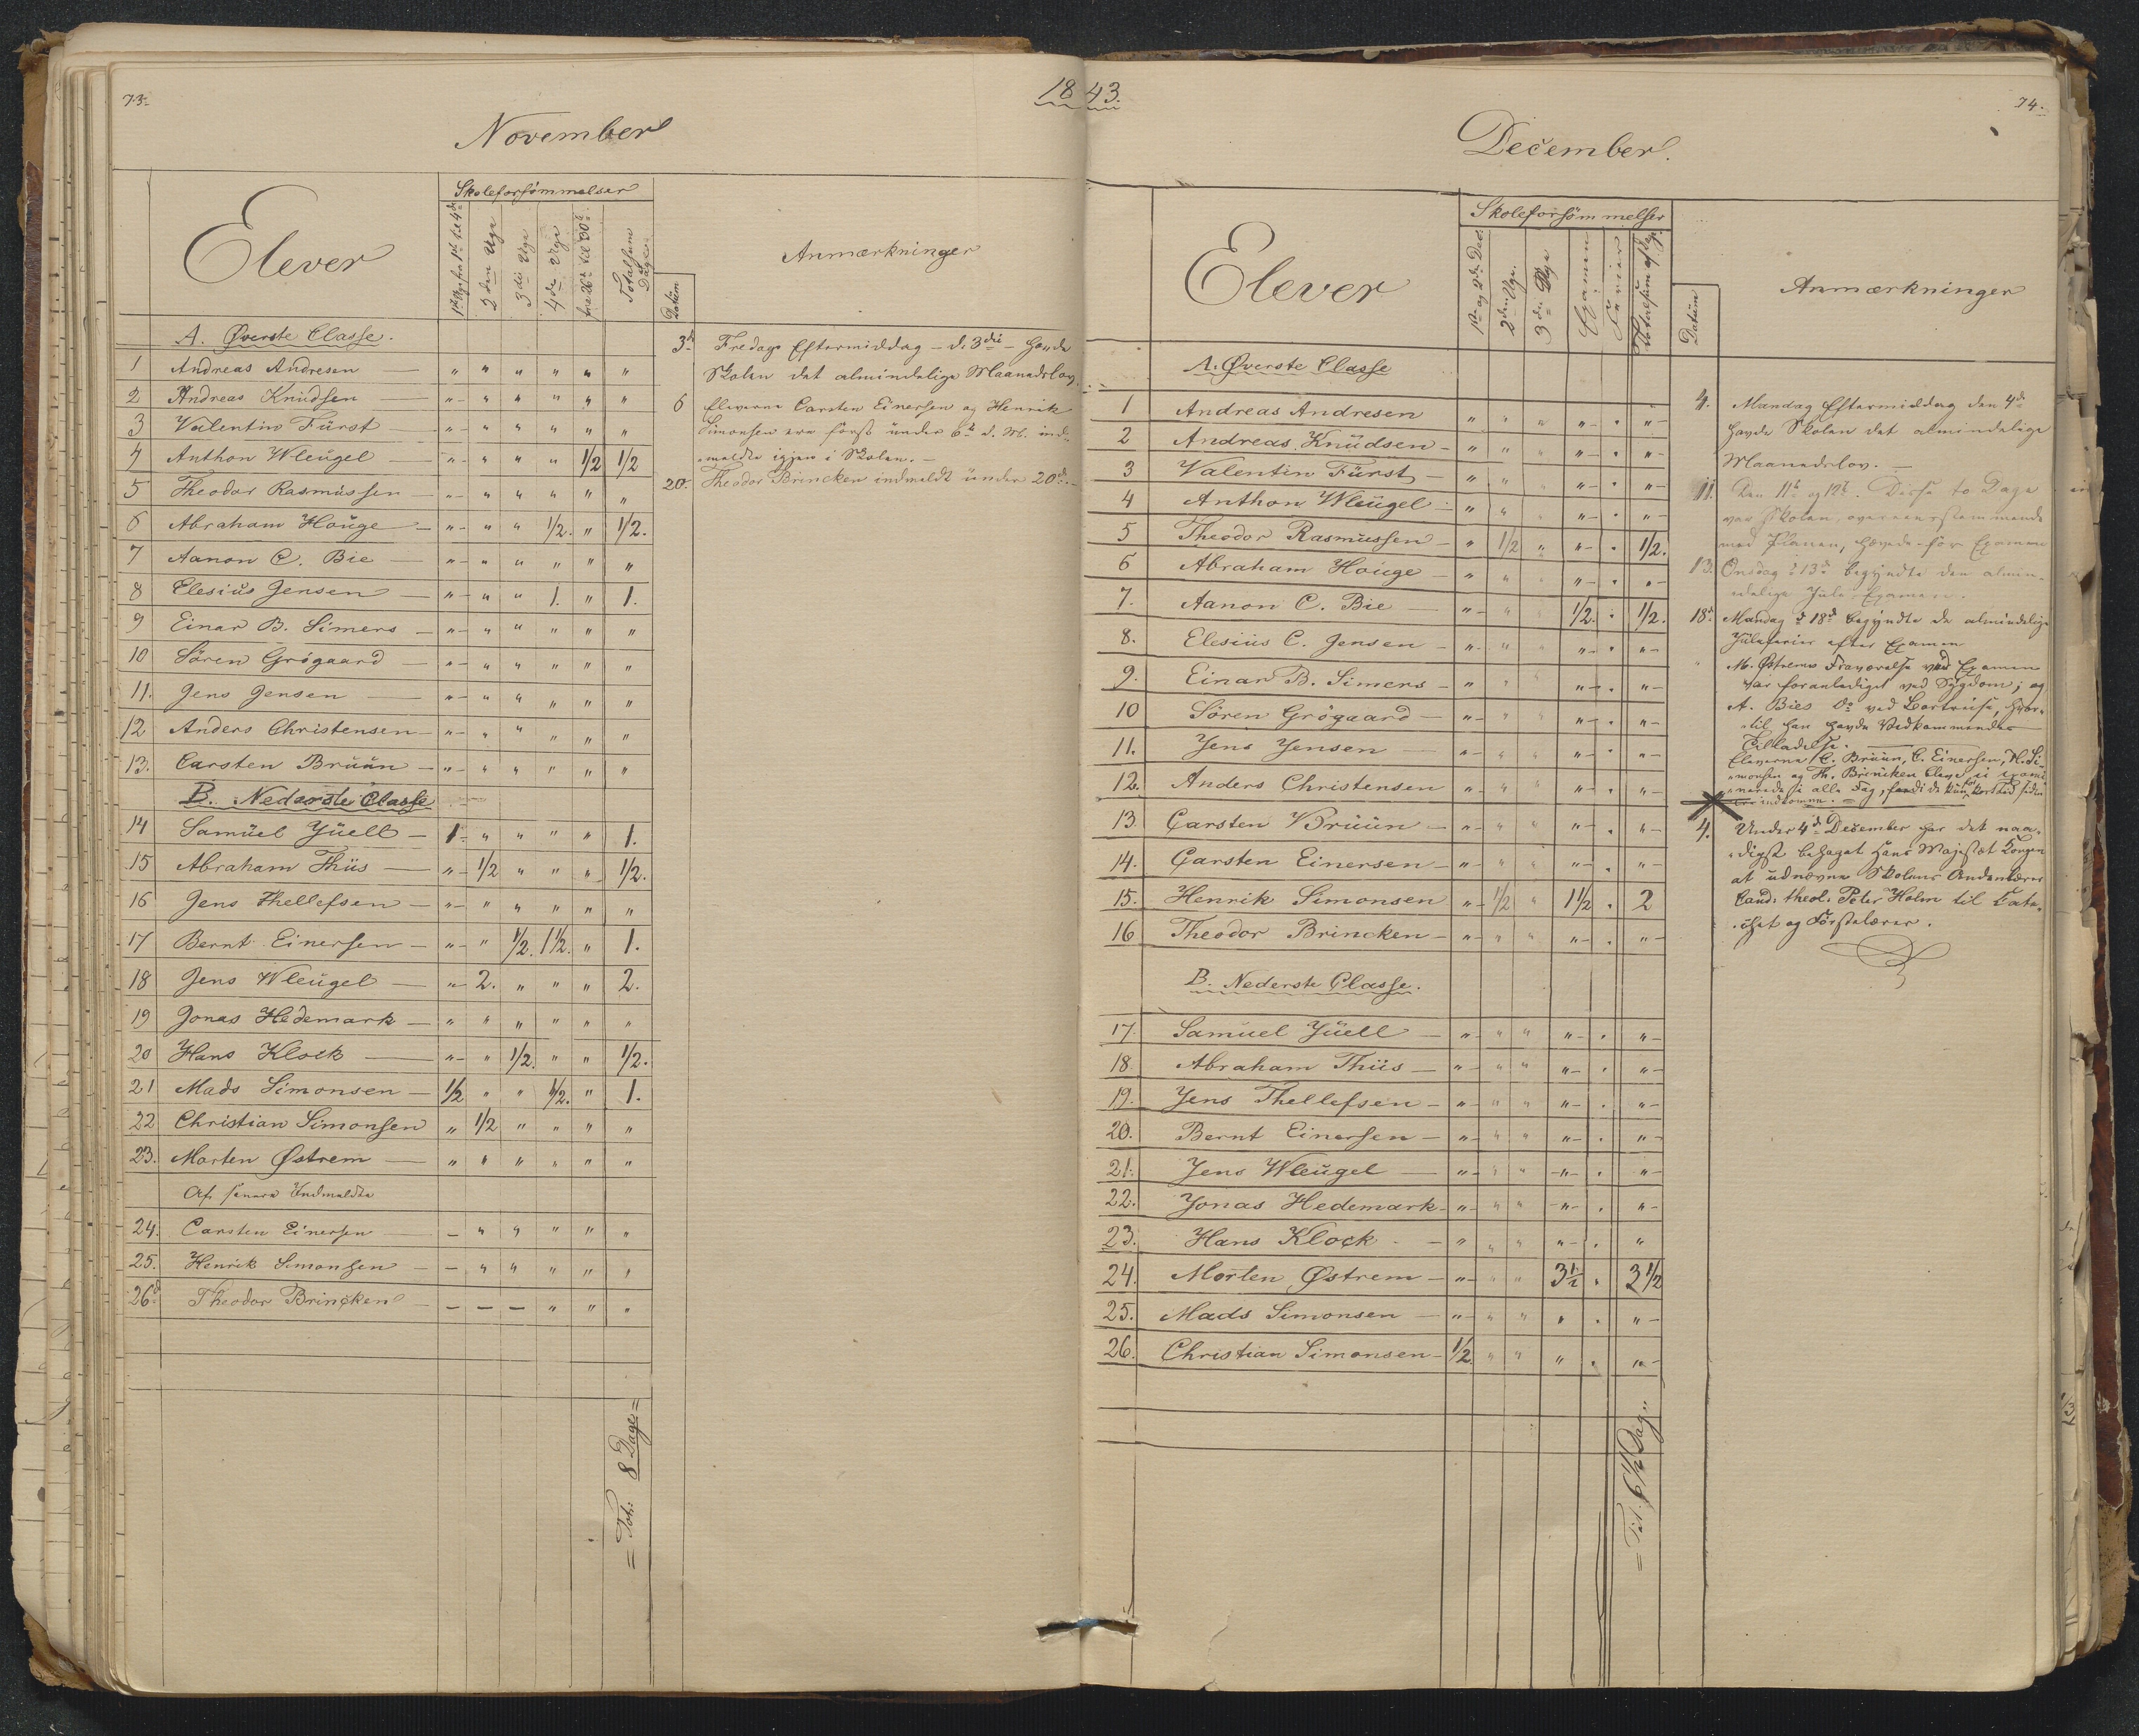 73.
1843.
74.
November
Skoleforsømmelser
Elever
1ste Uge fra 1ste til 4de
2den Uge
3die Uge
4de Uge
fra 26de til 30te
Totalsum Dage
Datum
Anmærkninger
A. Øverste Classe.
1 Andreas Andresen — " " " " " "
2 Andreas Knüdsen — " " " " " "
3 Valentin Fürst — " " " " " "
4 Anthon Wleügel — " " " " 1/2 1/2
5 Theodor Rasmüssen — " " " " " "
6 Abraham Houge — " " " 1/2. " 1/2.
7 Aanon C. Bie — " " " " " "
8 Elesiüs Jensen — " " " 1. " 1.
9 Einar B. Simers — " " " " " "
10 Sören Grögaard — " " " " " "
11. Jens Jensen — " " " " " "
12 Anders Christensen — " " " " " "
13. Carsten Brüün — " " " " " "
B. Nederste Classe
14 Samüel Jüell — 1 " " " " 1.
15 Abraham Thiis — " 1/2 " " " 1/2.
16 Jens Thellefsen — " " " " " "
17 Bernt Einersen — " " 1/2. 1 1/2. " 1.
18 Jens Wleügel — " 2. " " " 2.
19 Jonas Hedemark — " " " " " "
20 Hans Klock — " " 1/2. " " 1/2.
21 Mads Simonsen — 1/2 " " 1/2. " 1.
22 Christian Simonsen " 1/2 " " " "
23. Morten Østrem — " " " " " "
Af senere Indmeldte
24. Carsten Einersen — " " " " "
25. Henrik Simonsen — " " " " "
26d Theodor Brincken — — — " " "
= Tot: 8 Dage =
3d Fredags Eftermiddag – d. 3die – havde
Skolen det almindelige Maanedslov.
6 Eleverne Carsten Einersen og Henrik
Simonsen ere først ünder 6te d. M. ind-
meldte igjen i Skolen. –
20. Theodor Brincken indmeldt ünder 20de –
December.
Skoleforsømmelser
Elever
1ste og 2den Dec.
2den Uge.
3die Uge
Examen
Ferier
Totalsum af Dage.
Datüm
Anmærkninger
A. Øverste Classe
1 Andreas Andresen " " " " . "
2 Andreas Knüdsen — " " " " . "
3 Valentin Fürst — " " " " . "
4 Anthon Wleügel — " " " " . "
5 Theodor Rasmüssen — " 1/2 " " . 1/2.
6 Abraham Houge — " " " " . "
7. Aanon C. Bie — " " " 1/2. . 1/2.
8. Elesiüs C. Jensen — " " " " . "
9. Einar B. Simers — " " " " . "
10 Sören Grögaard — " " " " . "
11. Jens Jensen — " " " " . "
12. Anders Christensen " " " " . "
13. Carsten Brüün — " " " " . "
14. Carsten Einersen — " " " " . "
15. Henrik Simonsen " 1/2 " 1 1/2 . 2
16 Theodor Brincken — " " " " . "
B. Nederste Classe.
17. Samuel Jüell — " " " " . "
18. Abraham Thiis — " " " " . "
19. Jens Thellefsen — " " " " . "
20. Bernt Einersen — " " " " . "
21. Jens Wleügel — " " " " . "
22. Jonas Hedemark — " " " " . "
23. Hans Klock — " " " " . "
24. Morten Østrem — " " " 3 1/2 . 3 1/2
25. Mads Simonsen — " " " " . "
26. Christian Simonsen — 1/2 " " " . "
= Tot. 6 1/2 Dag "
4. Mandag Eftermiddag den 4de
havde Skolen det almindelige
Maanedslov. —
11. Den 11te og 12te. Disse to Dage
var Skolen, overeensstemmende
med Planen, hævede før Examen
13. Onsdag d 13de begyndte den almin-
delige Jule-Examen.
18d. Mandag d 18de begyndte de almindelige
Juleferier efter Examen
" M. Østrems Fraværelse ved Examen
var foranlediget ved Sygdom; og
A. Bies Do ved Bortreise, hvor-
til han havde Vedkommendes
Tilladelse.
Eleverne C. Brüün, C. Einersen, H. Si-
monsen og Th. Brincken bleve ei exami-
nerede i alle Fag, fordi de kün for kort Tid siden
ere indkomne.
4. Under 4de December har det naa-
digst behaget Hans Majestæt Kongen
at udnævne Skolens Andenlærer
Cand. theol. Peter Holm til Cate-
chet og Førstelærer.